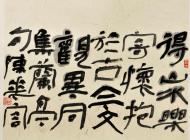 得山水興
寄懷抱
於古今文
觀異同
集蘭亭
句陳華